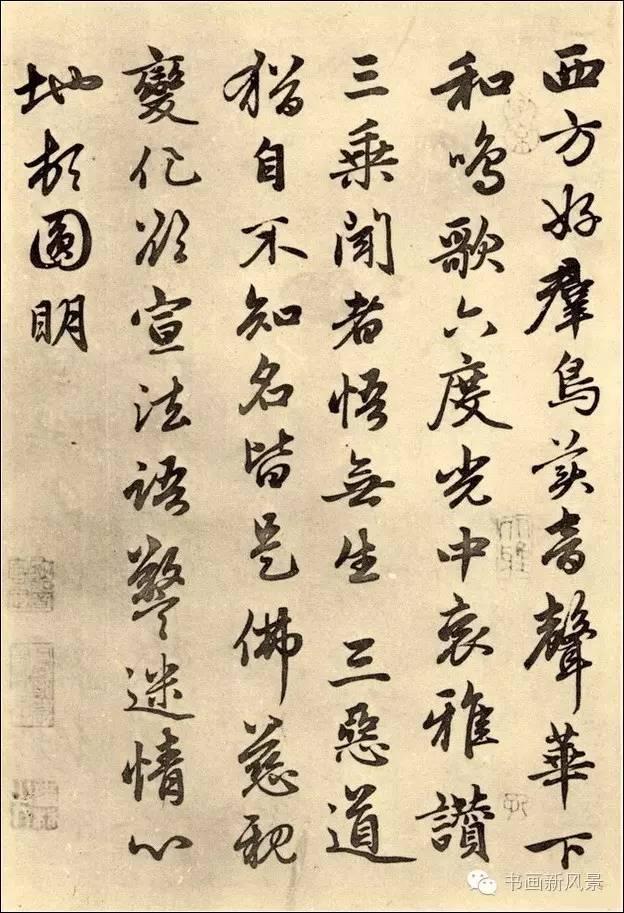 西方好羣鳥美音聲華下
和鳴歌六度光中哀雅讚
三乘聞者悟無生 三惡道
猶自不知名皆是佛慈親
變化欲宣法語警迷情心
地頓圓明
书画新风景